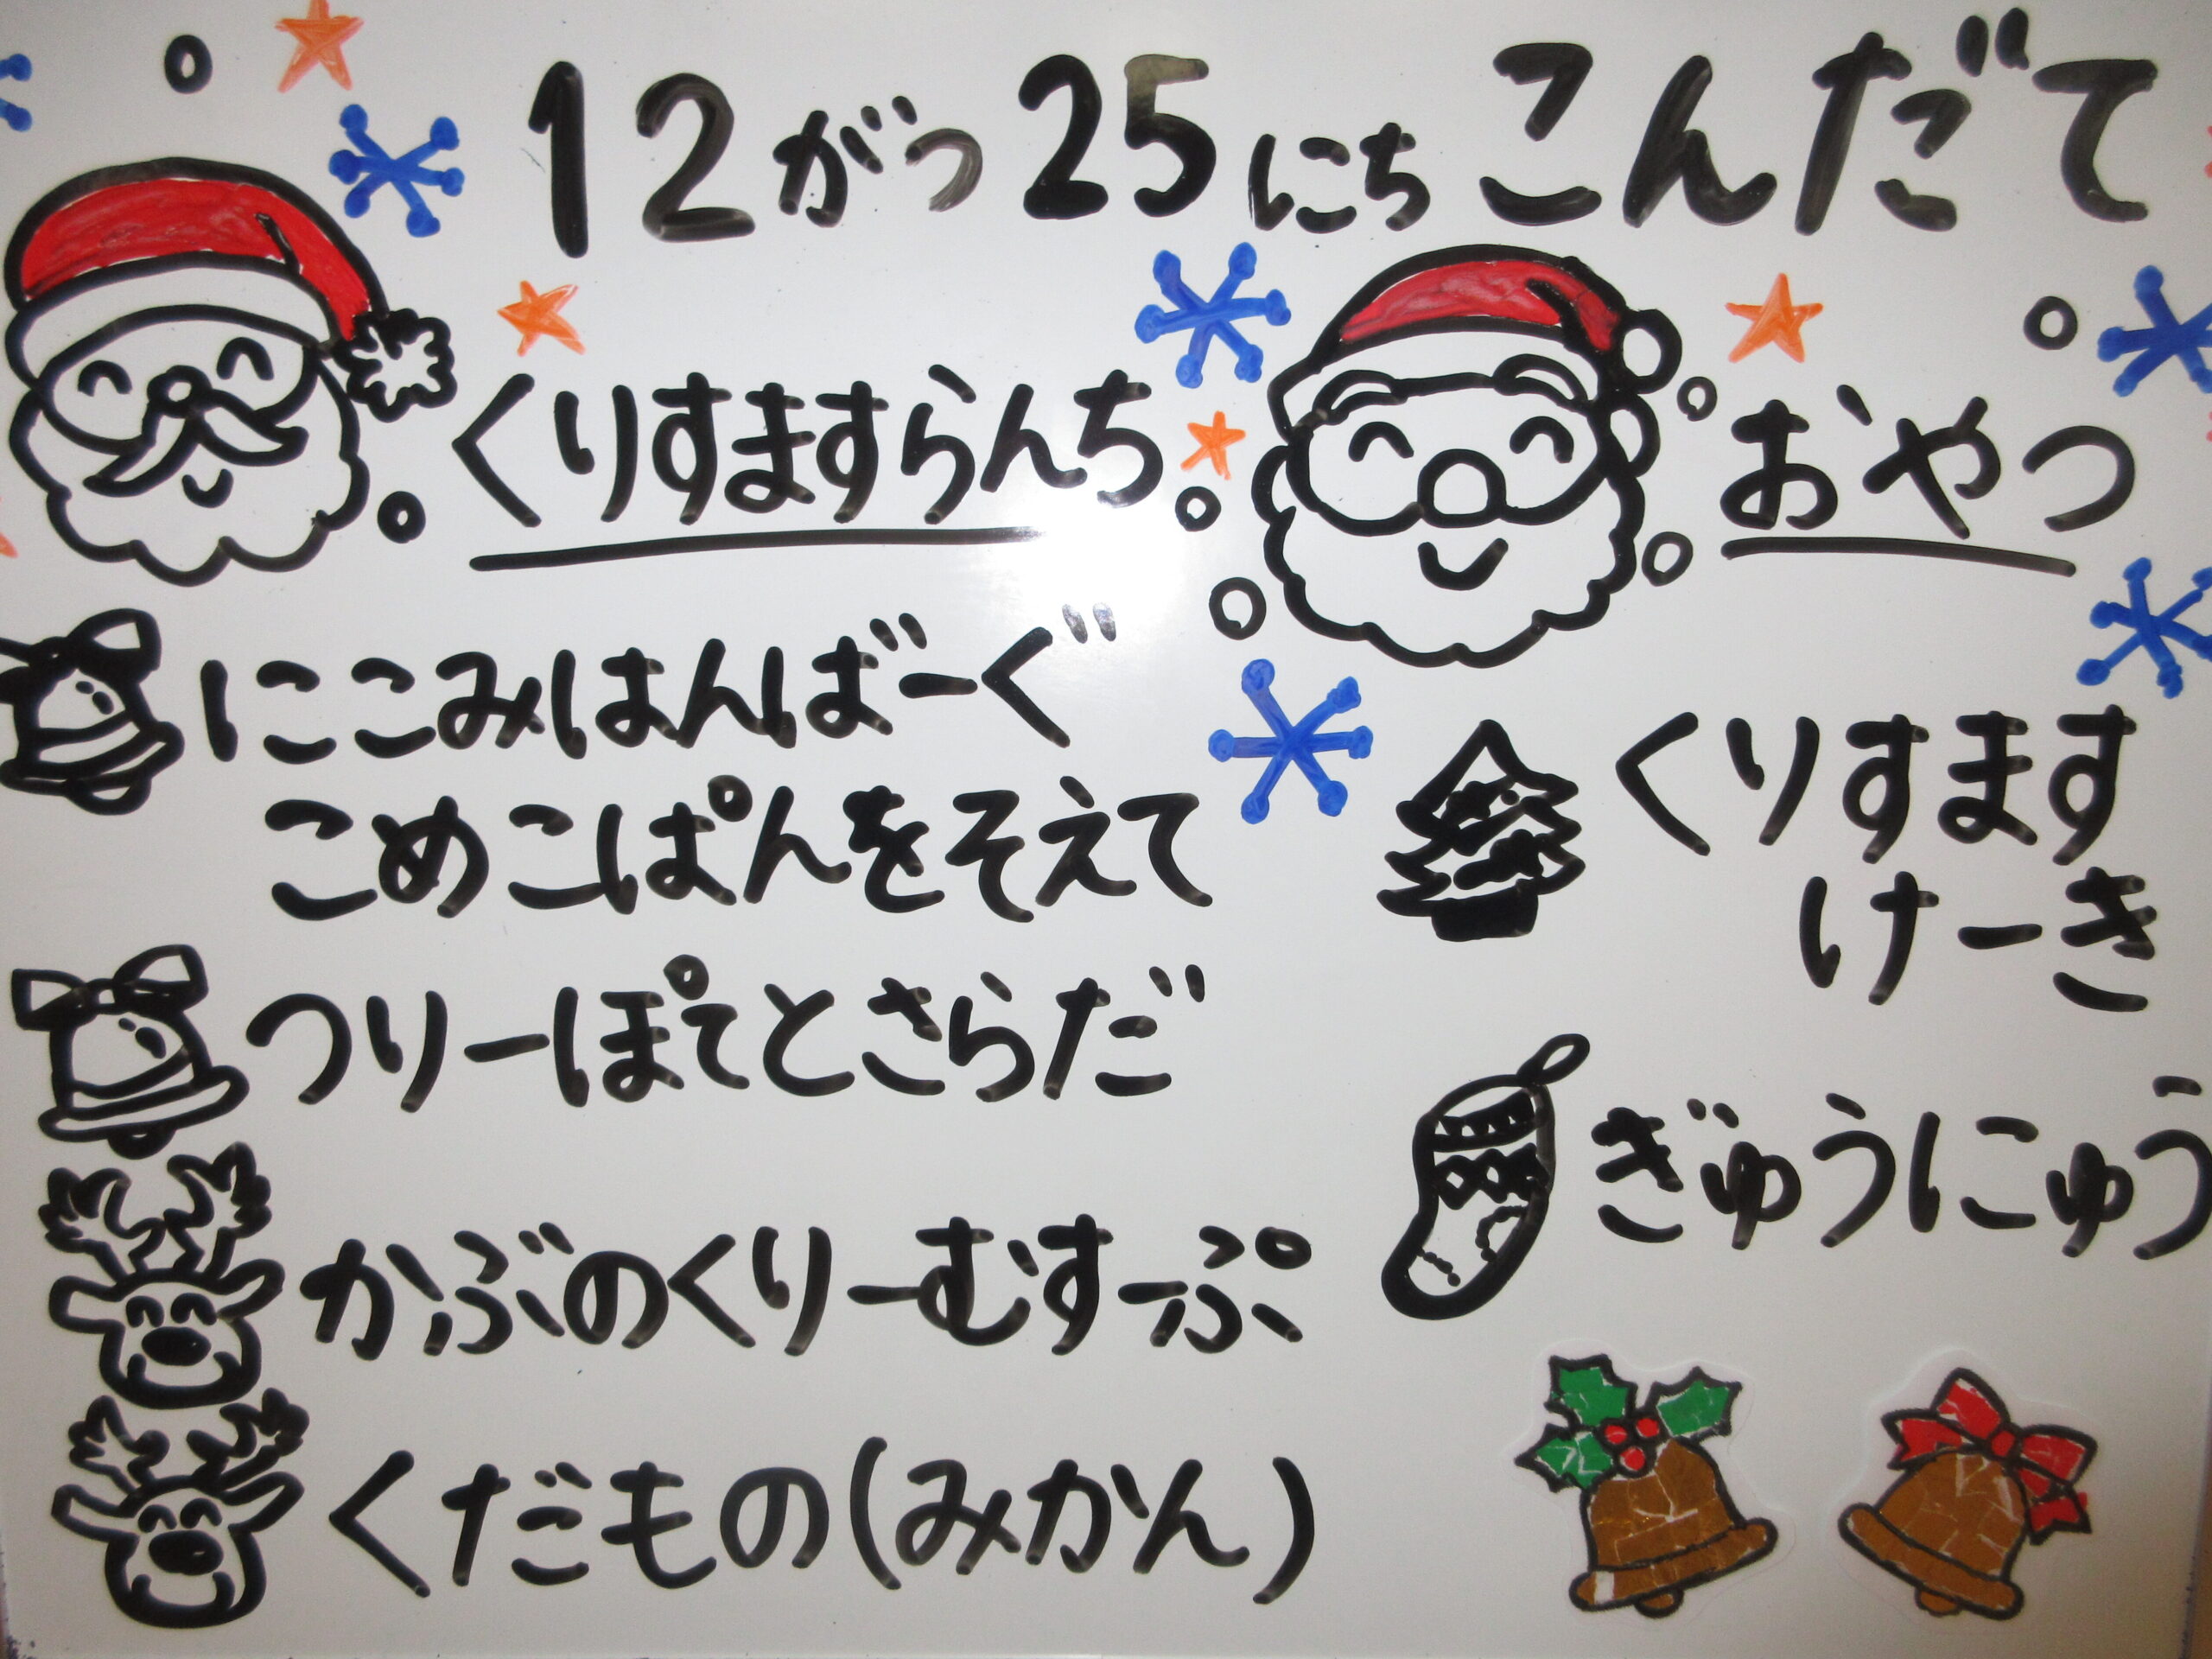 12がつ25にち こんだて
くりすますらんち
にこみはんばーぐ
こめこぱんをそえて
つりーぽてとさらだ
かぶのくりーむすーぷ
くだもの(みかん)
おやつ
くりすます
けーき
ぎゅうにゅう